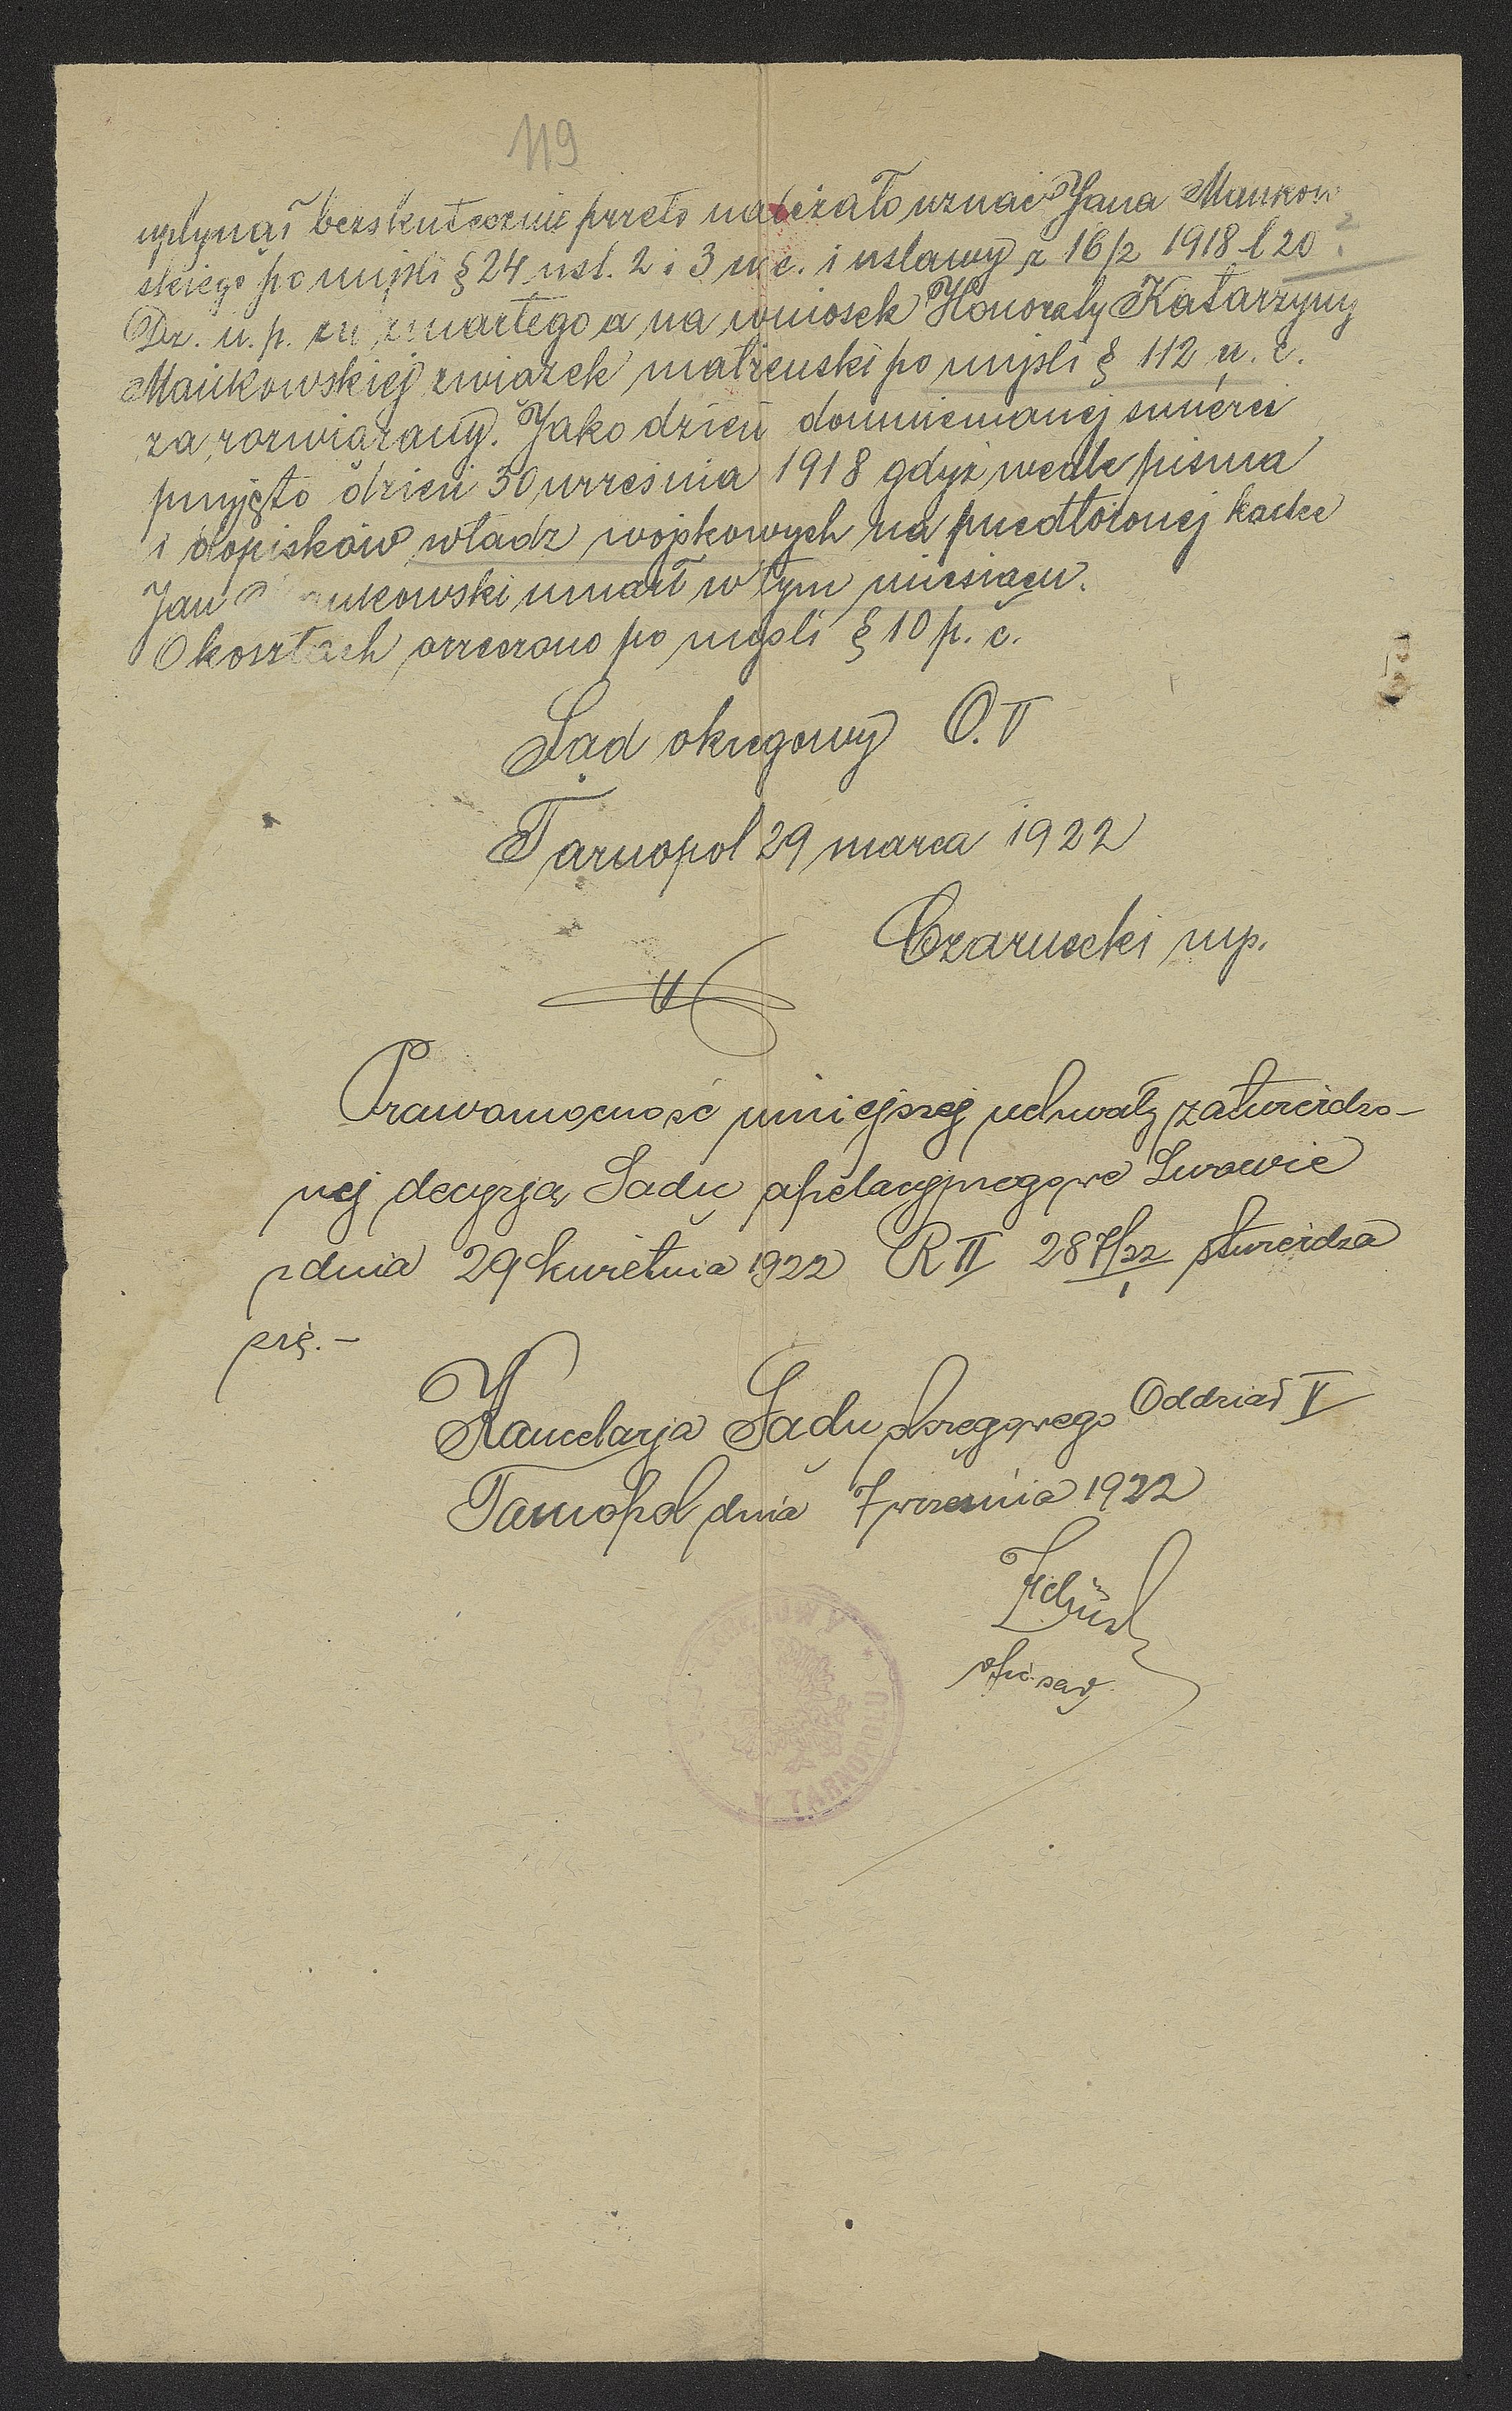 119
upłynął bezskutecznie przeto należało uznać Jana Mankow
skiego po myśli § 24 ust. 2 i 3 u c. i ustawy z 16/2 1918 l 20
Dz. u. p. za zmarłego a na wniosek Honoraty Katarzyny
Mańkowskiej związek małżeński po myśli § 112 u. c.
za rozwiązany. Jako dzień domniemanej śmierci
przyjęto dzień 30 września 1918 gdyż wedle pisma
i dopisków władz wojskowych na przedłożonej kartce
Jan ankowski umarł w tym miesiącu.
O kosztach orzeczono po myśli § 10 p. c.
Sąd okręgowy O. V
Tarnopol 29 marca 1922
Czarnecki mp.
Prawomocność niniejszej uchwały zatwierdzo-
nej decyzją Sądu apelacyjnego we Lwowie
z dnia 29 kwietnia 1922 R II 287/22 stwierdza
1
się.-
Kancelarja Sądu okręgowego Oddział V
Tarnopol dnia 7 września 1922
OKRĘGOWY * W TARNOPOLU